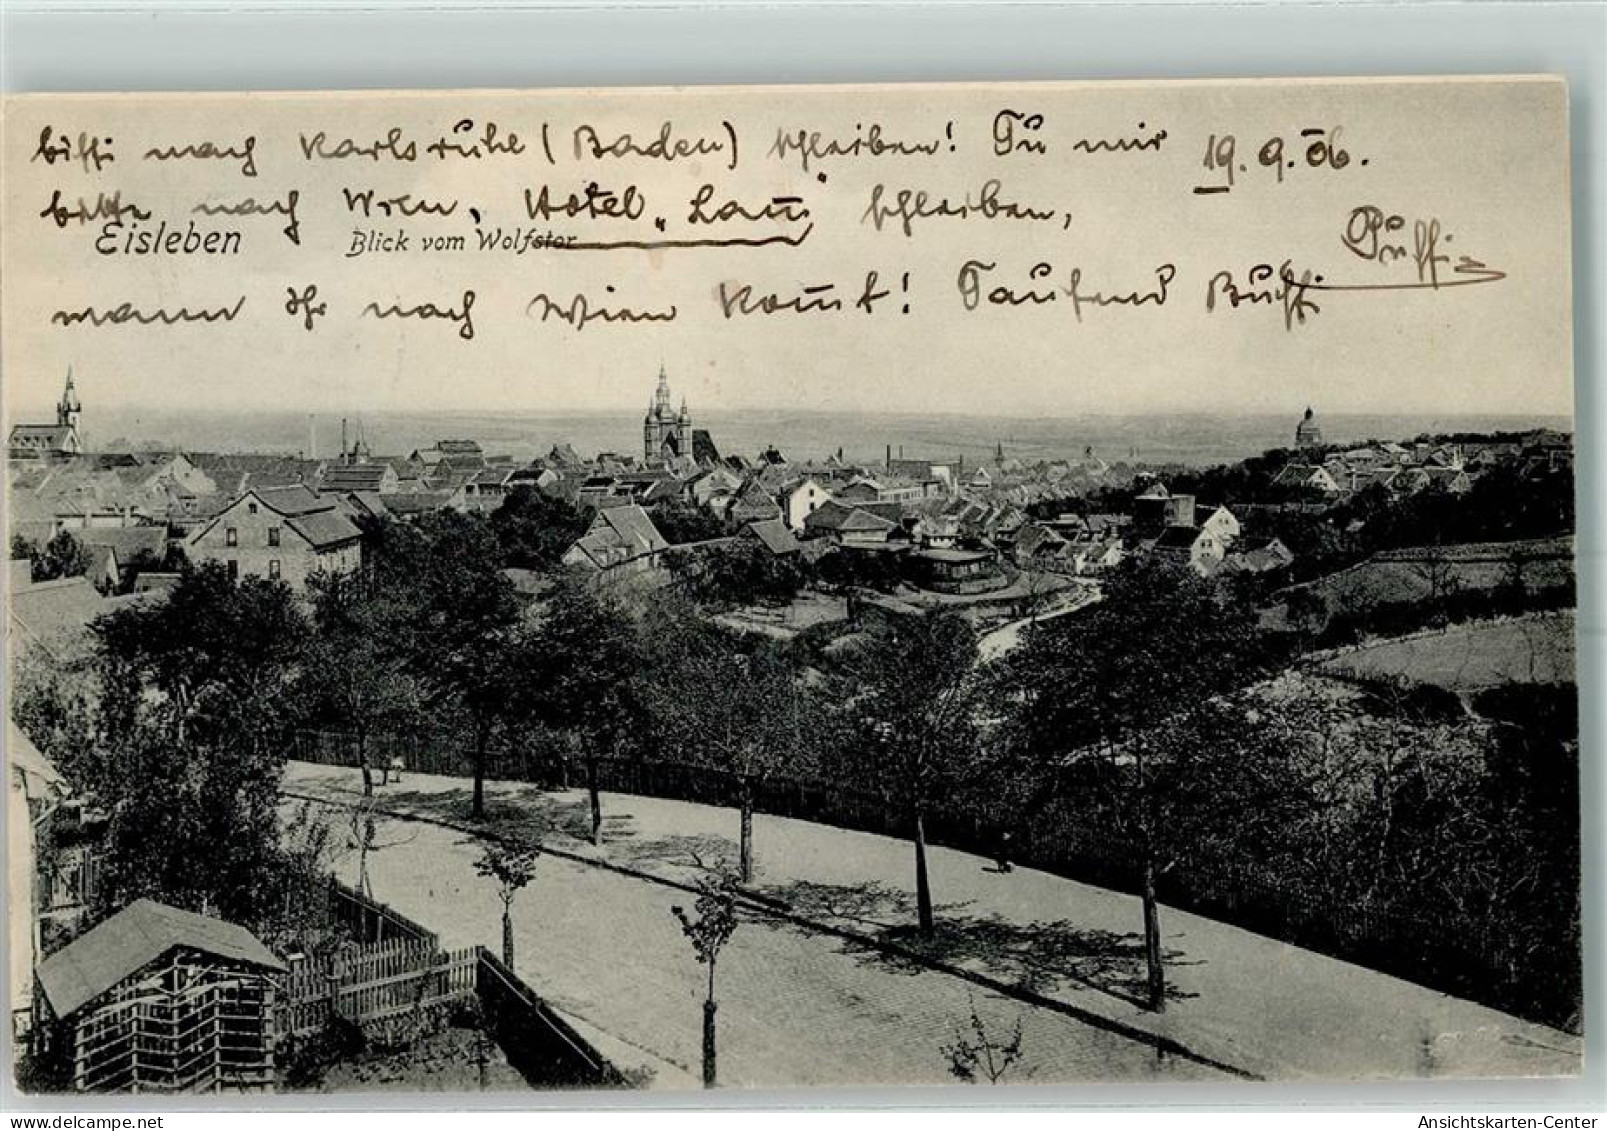 bitte nach Karlsruhe (Baden) schreiben! Du mir 19.9.06.
bitte nach Wien, Hotel schreiben,
Eisleben Blick vom Wolfstor
wann Ihr nach Wien kommt! Tausend
Ansichtskarten-Center